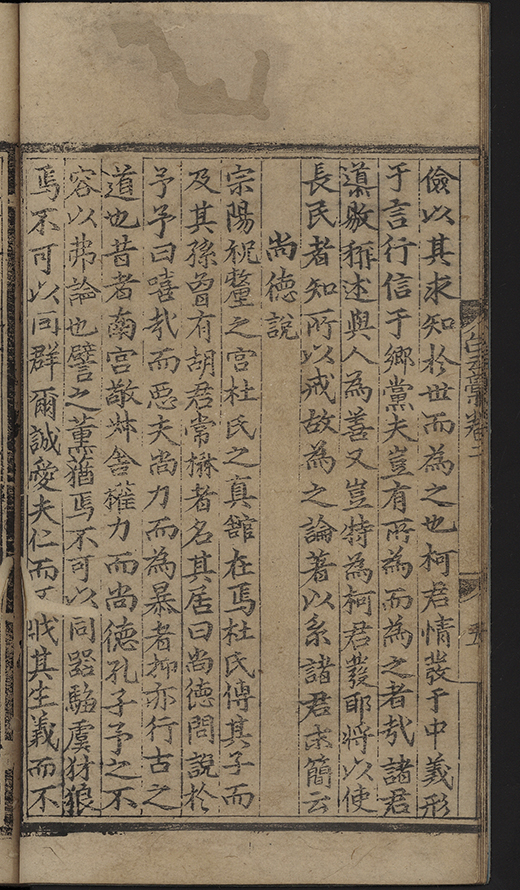 儉以其求知於世而為之也柯君情發于中義形
于言行信于鄉黨夫豈有所為而為之者哉諸君
遵敬稱述與人為善又豈特為柯君發耶將以使
長民者知所以戒故為之論著以系諸君末簡云
尚德說
宗陽祝釐之宮杜氏之真館在焉杜氏傳其子而
及其孫曾有胡君常楙者名其居曰尚德問說於
予予曰嘻哉而惡夫尚力而為暴者抑亦行古之
道也昔者南宮敬叔舍權力而尚德孔子予之不
容以弗論也譬之薰蕕焉不可以同器騶虞豺狼
焉不可以同群爾誠愛夫仁而 戕其生義而不
白雲稾卷二